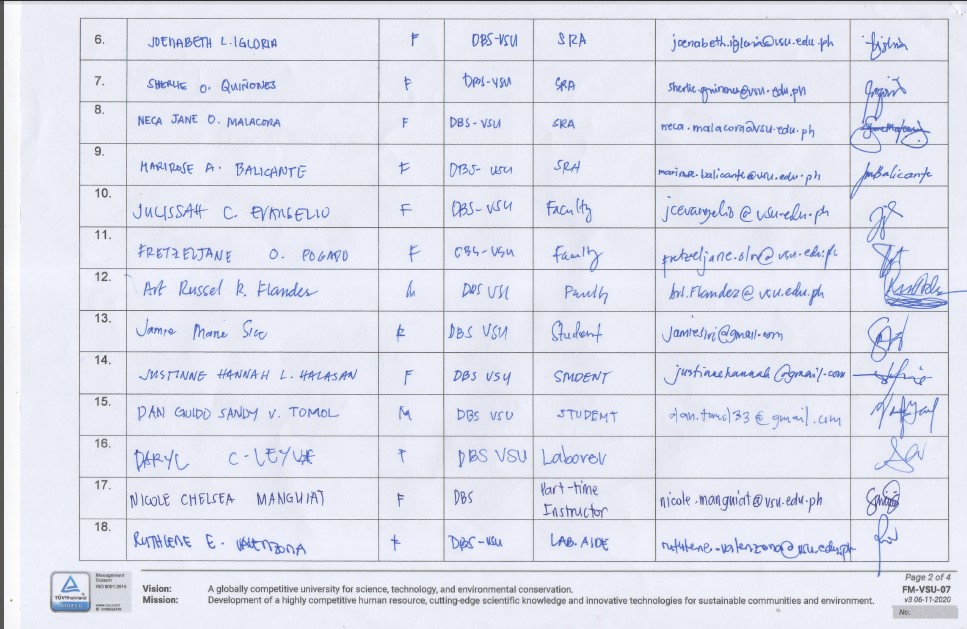 6. JOENABETH L. IGLORIA F DBS-VSU SRA joenabeth.igloria@vsu.edu.ph
7. SHERLIE O. QUIÑONES F DBS-VSU SRA sherlie.quinones@vsu.edu.ph
8. NECA JANE O. MALACORA F DBS-VSU SRA neca.malacora@vsu.edu.ph
9. MARIROSE A. BALICANTE F DBS-VSU SRA marirose.balicante@vsu.edu.ph
10. JULISSAH C. EVANGELIO F DBS-VSU Faculty jcevangelio@vsu.edu.ph
11. FRETZELJANE O. POGADO F DBS-VSU Faculty
12. Art Russel R. Flandez M DBS VSU Faculty
13. Jamie Marie F DBS VSU Student
14. JUSTINNE HANNAH L. HALASAN F DBS VSU STUDENT justinnehannah@gmail.com
15. DAN GUIDO SANDY V. TOMOL M DBS VSU STUDENT dan.tomol33@gmail.com
16. DARYL C. LEYVA DBS VSU Laborer
17. NICOLE CHELSEA MANGUIAT F DBS Part-time Instructor nicole.manguiat@vsu.edu.ph
18. RUTHLENE E. VALENZONA F DBS-VSU LAB. AIDE
TÜVRheinland
Management System
ISO 9001:2015
Vision: A globally competitive university for science, technology, and environmental conservation.
Mission: Development of a highly competitive human resource, cutting-edge scientific knowledge and innovative technologies for sustainable communities and environment.
Page 2 of 4
FM-VSU-07
v3 06-11-2020
No.